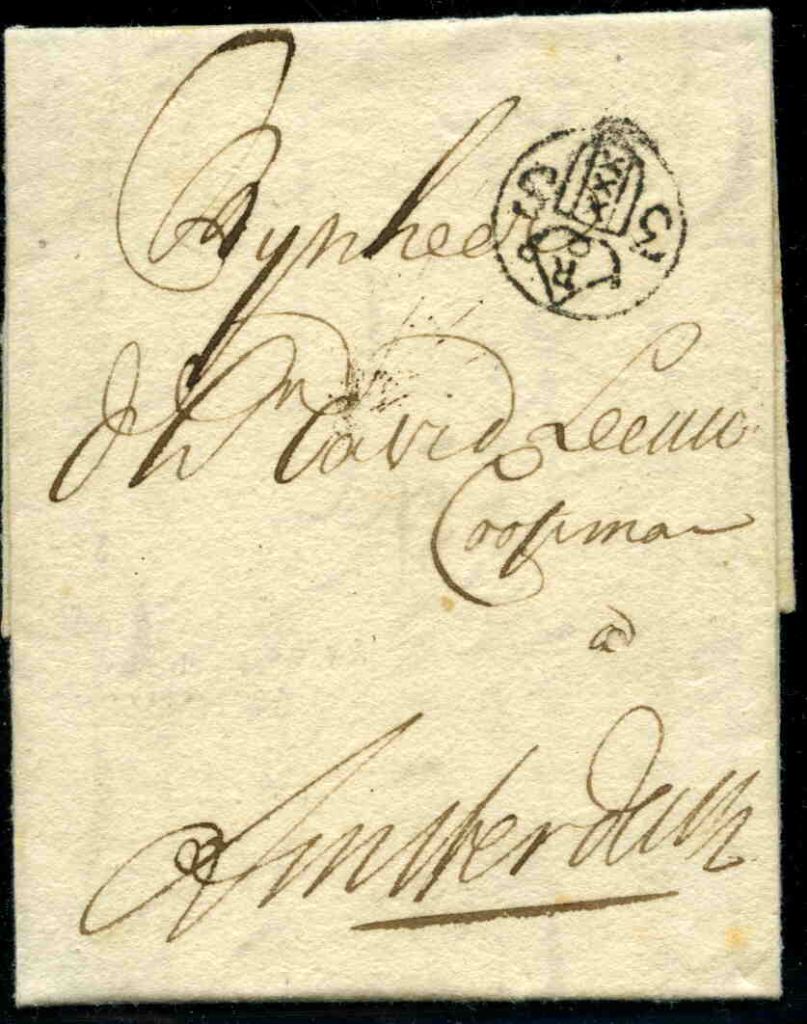 Mynheer
dhr David Leeuw
Coopman
a
Amsterdam
3 S
XXX
R